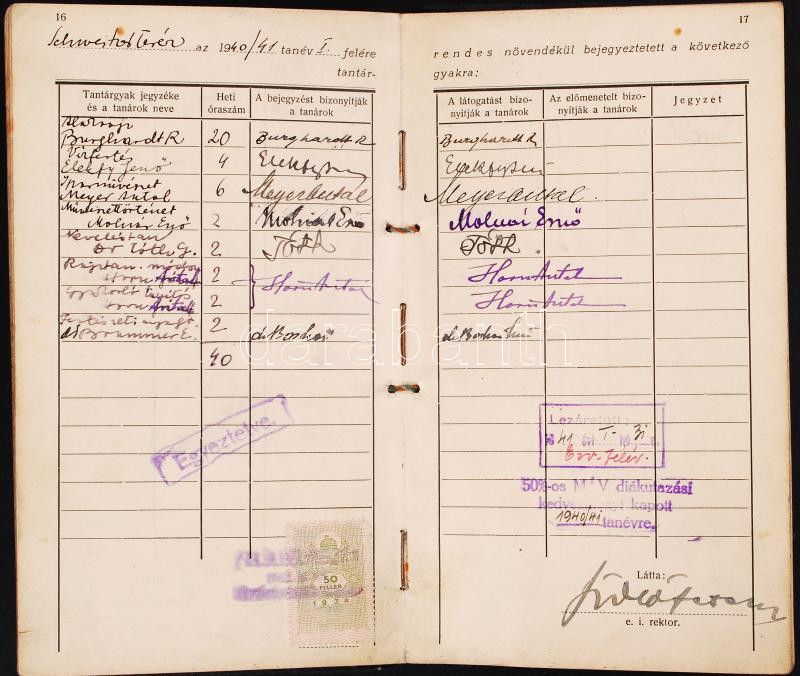 16
az 1940/41 tanév I. felére
tantár-
Tantárgyak jegyzéke
és a tanárok neve
Heti
óraszám
A bejegyzést bizonyítják
a tanárok
Alakrajz
Burghardt R 20 Burghardt R
Elekfy Jenő 4 Elekfy Jenő
Iparművészet
Meyer Antal 6 Meyer Antal
Művészettörténet
Molnár Ernő 2 Molnár Ernő
Neveléstan
Dr Tóth G. 2
2
Antal
2
Antal
Horn Antal
2
40
Egyeztetve.
50
FILLÉR
1934
17
rendes növendékül bejegyeztetett a következő
gyakra:
A látogatást bizo-
nyítják a tanárok
Az előmenetelt bizo-
nyítják a tanárok
Jegyzet
Burghardt R
Elekfy Jenő
Meyer Antal
Molnár Ernő
Horn Antal
Horn Antal
Lezáratott:
41 I. 31
Err. félév.
50%-os MÁV diákutazási
kedvezményt kapott
1940/41 tanévre.
Látta:
e. i. rektor.
darabanth